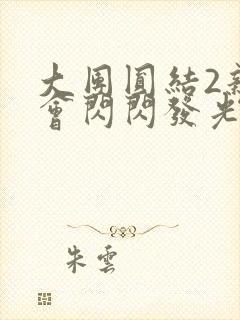 大團圓結2新
會閃閃發光
朱雲